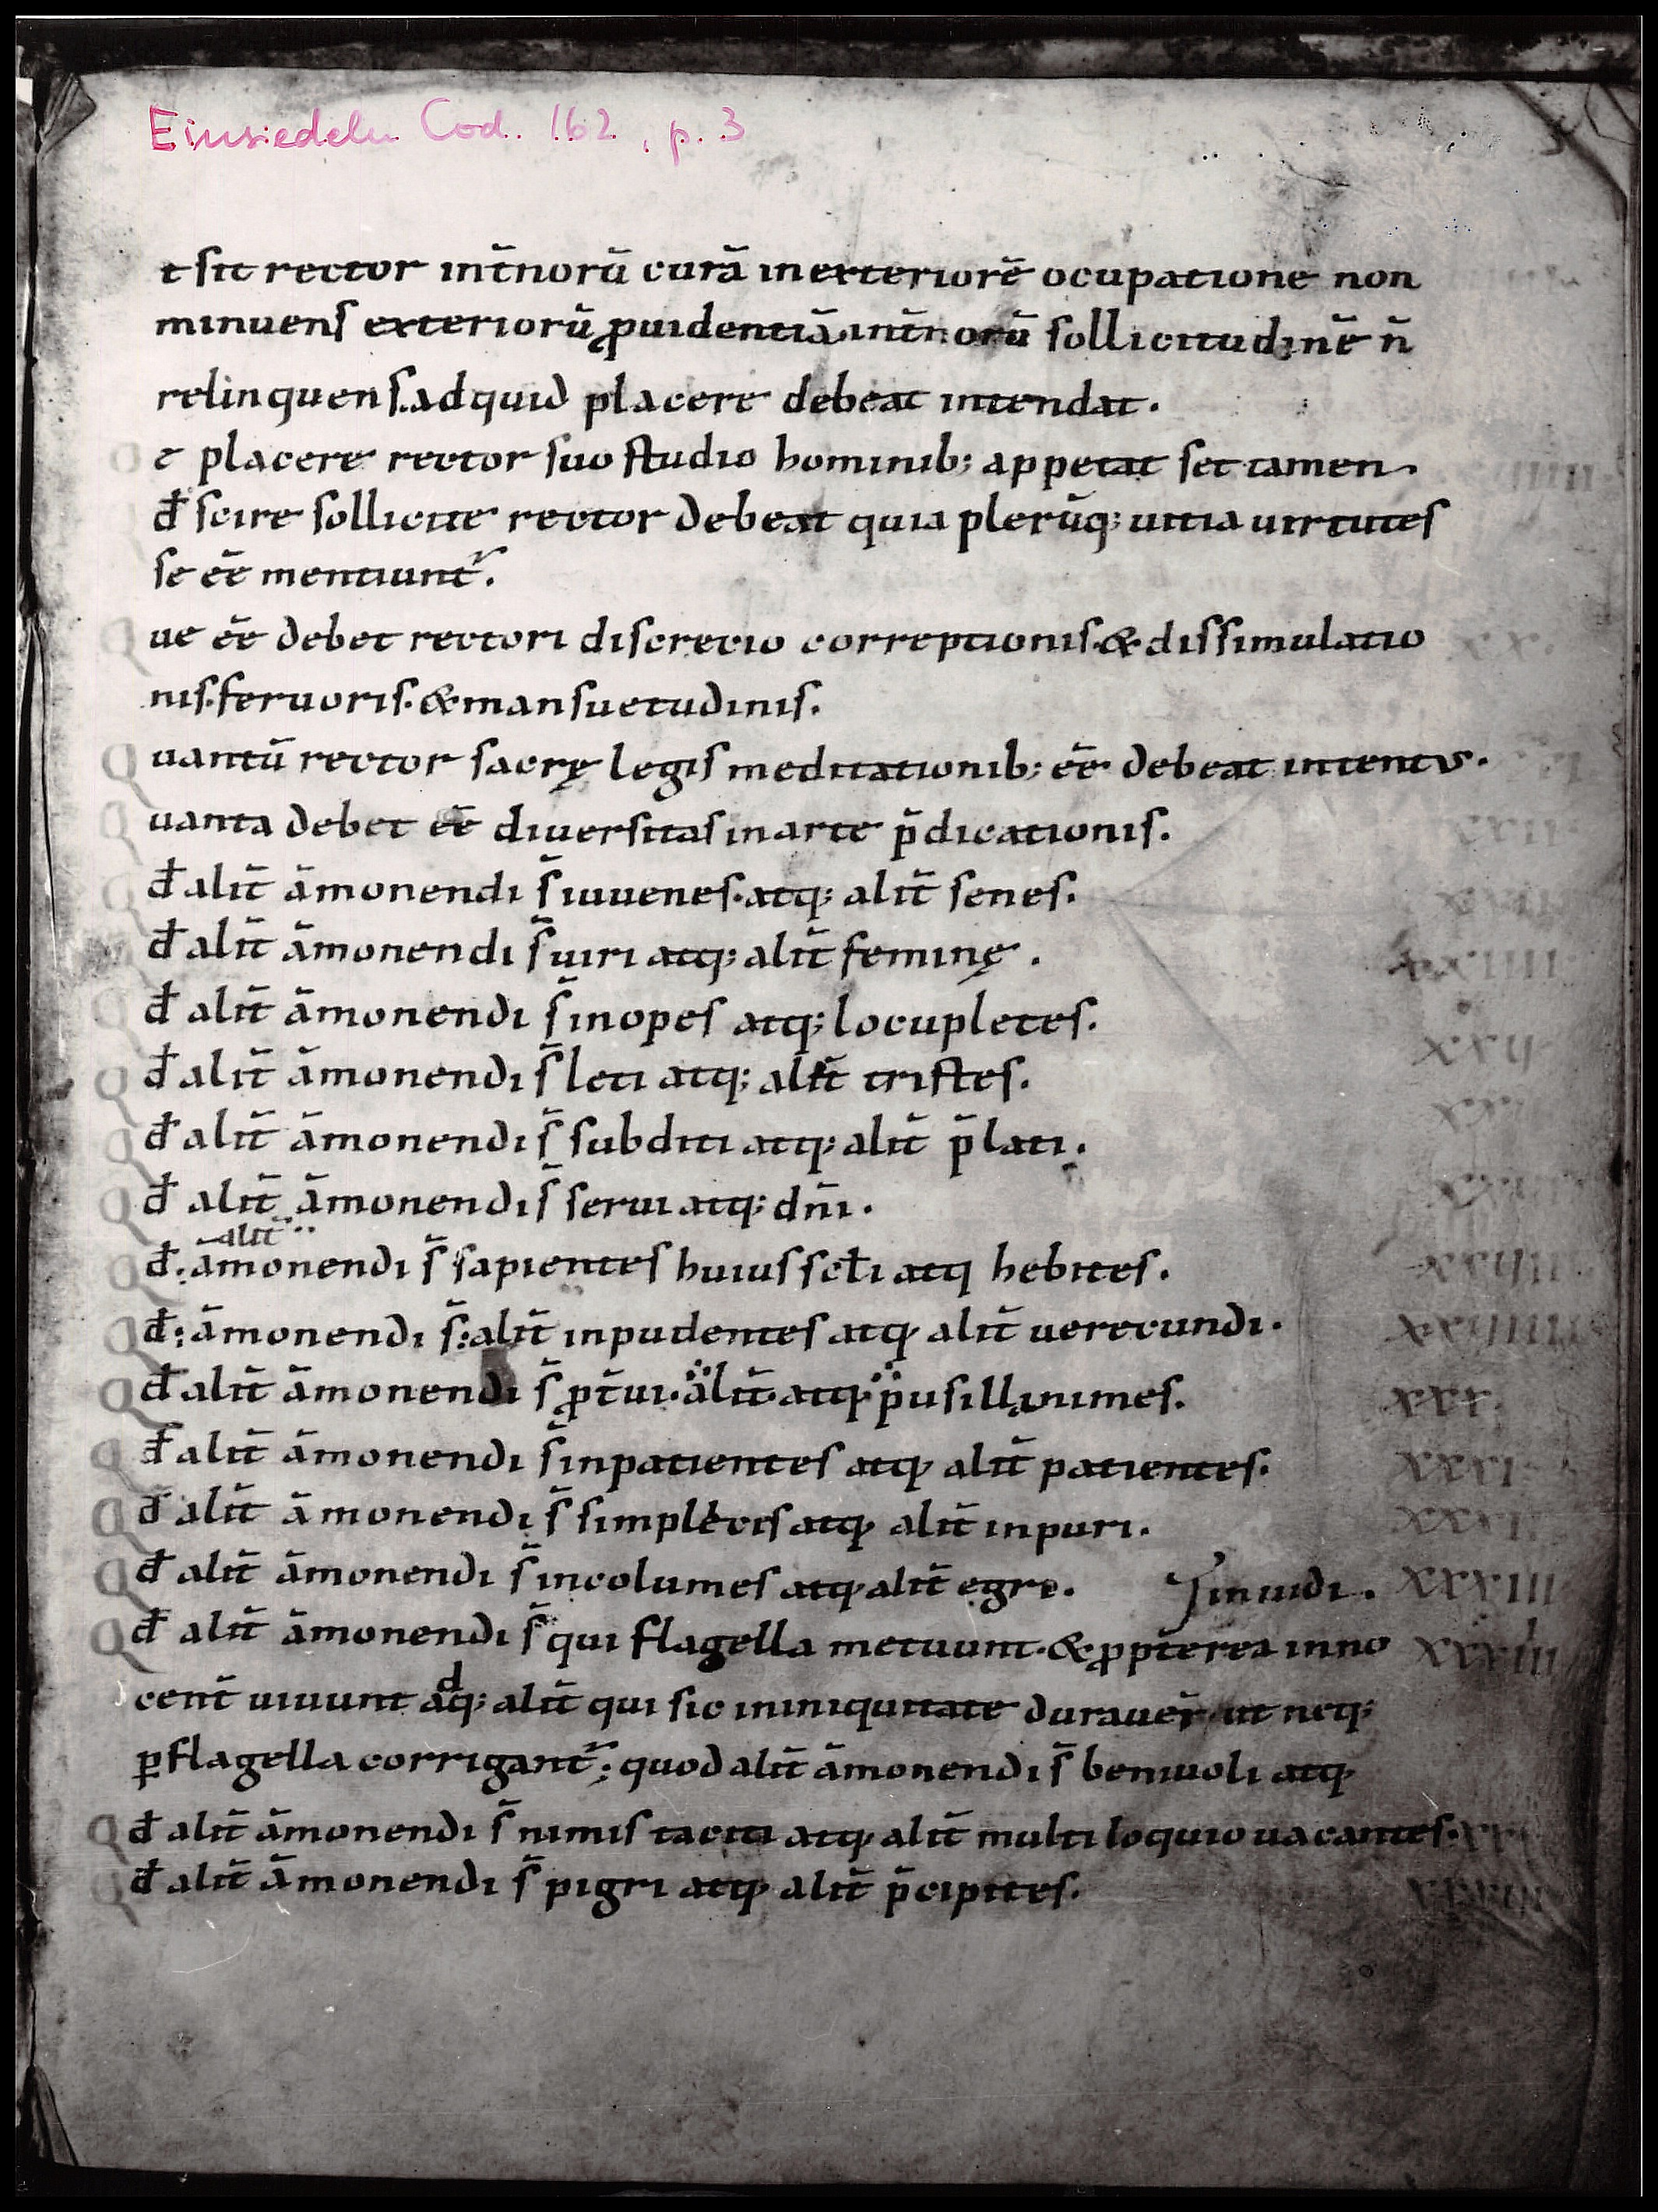 Einsiedeln Cod. 162, p. 3
t sit rector int̄norū curā in exteriorē ocupatione non
minuens exteriorū ꝓuidentiā int̄norū sollicitudinē n̄
relinquens. ad quid placere debeat intendat.
t placere rector suo studio hominib; appetat set tamen.
đ scire sollicite rector debeat quia plerūq; uitia uirtutes
se ēē mentiunt᷑.
Que ēē debet rectori discretio correptionis. & dissimulatio
nis. feruoris. & mansuetudinis. xx.
Quantū rector sacrę legis meditationib; ēē debeat intentus.
Quanta debet ēē diuersitas in arte p̄dicationis. xxii
Qđ alit̄ āmonendi s̄ iuuenes. atq; alit̄ senes.
Qđ alit̄ āmonendi s̄ uiri atq; alit̄ feminę. xxiiii
Qđ alit̄ āmonendi s̄ inopes atq; locupletes.
Qđ alit̄ āmonendi s̄ leti atq; alit̄ tristes.
Qđ alit̄ āmonendi s̄ subditi atq; alit̄ p̄lati.
Qđ alit̄ āmonendi s̄ serui atq; dn̄i.
alit̄
Qđ: āmonendi s̄ sapientes huius scłi atq hebites.
Qđ: āmonendi s̄: alit̄ inpudentes atq alit̄ uerecundi.
Qđ alit̄ āmonendi s̄ ꝓt̄ui. alit̄. atq pusillanimes. xxx.
Qđ alit̄ āmonendi s̄ inpatientes atq alit̄ patientes. xxxi
Qđ alit̄ āmonendi s̄ simplicis atq alit̄ inpuri.
Qđ alit̄ āmonendi s̄ incolumes atq alit̄ egri. inuidi. xxxiii
Qđ alit̄ āmonendi s̄ qui flagella metuunt. & ꝓpt̄erea inno
cent̄ uiuunt adq; alit̄ qui sic in iniquitate durauer̄ ut neq;
ꝑ flagella corrigant᷑; quod alit̄ āmonendi s̄ beniuoli atq
Qđ alit̄ āmonendi s̄ nimis taciti atq alit̄ multi loquio uacantes.
Qđ alit̄ āmonendi s̄ pigri atq alit̄ p̄cipites.